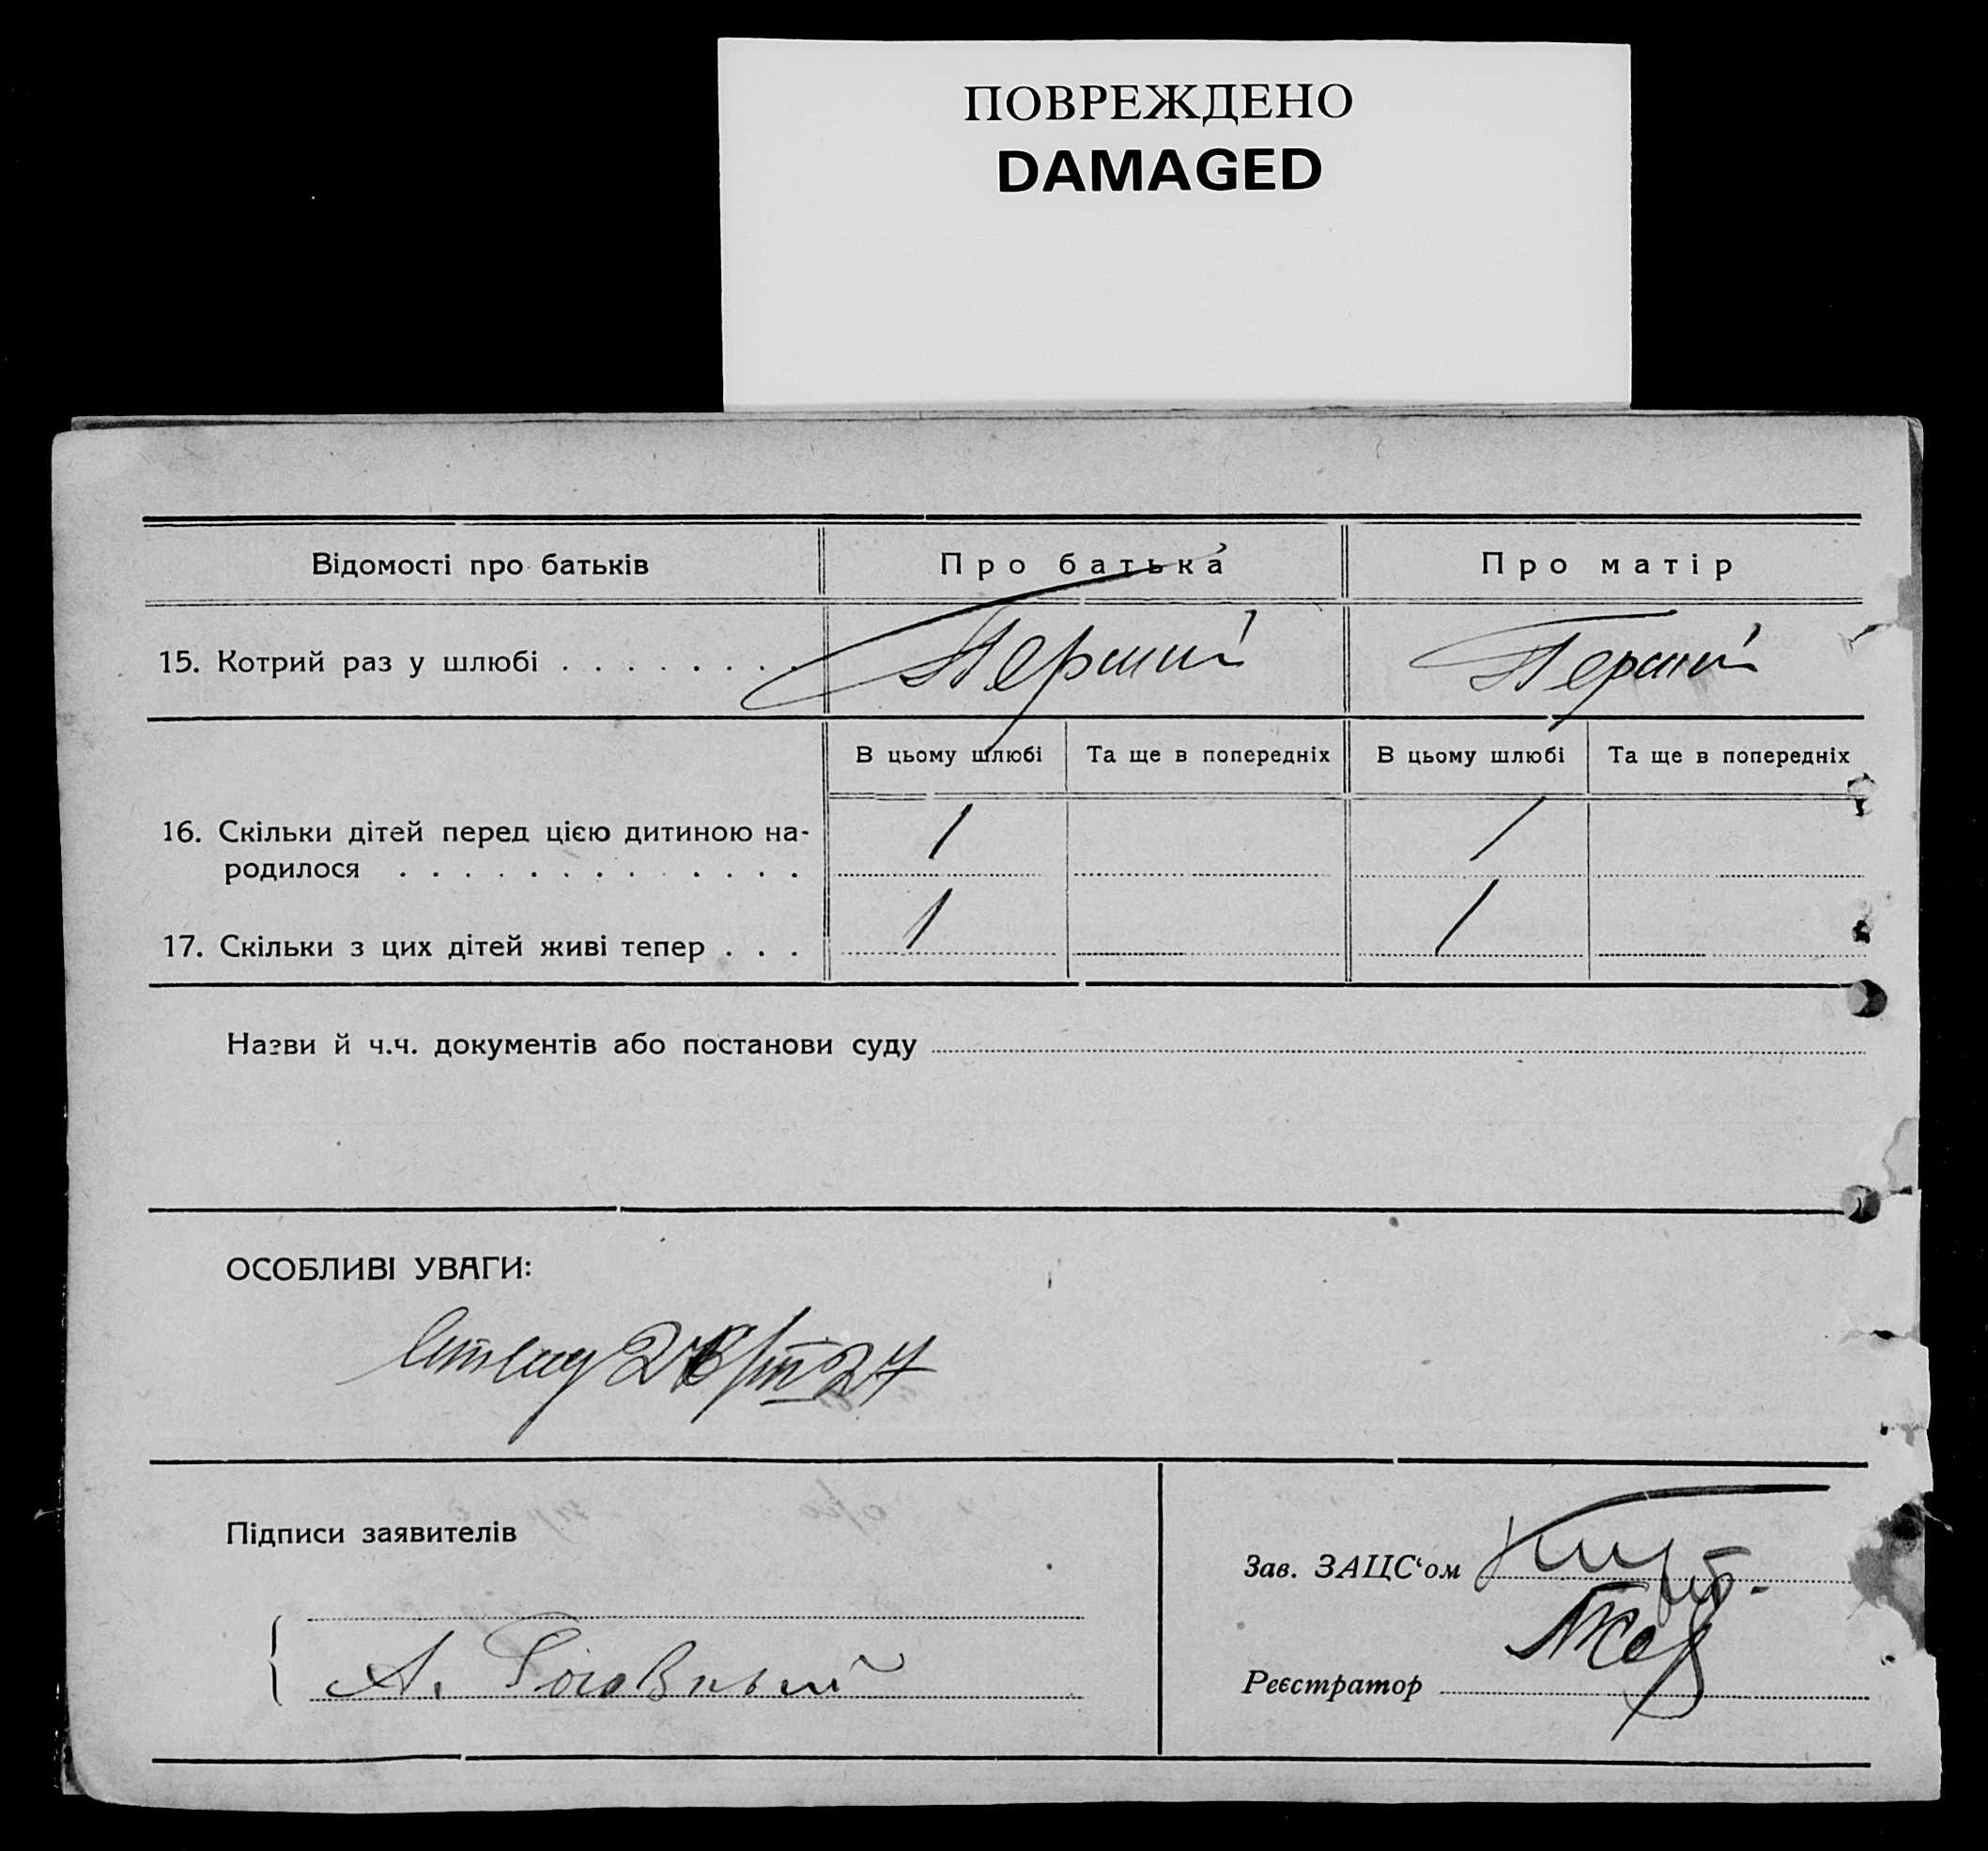 ПОВРЕЖДЕНО
DAMAGED
Відомості про батьків
Про батька
Про матір
15. Котрий раз у шлюбі . . . . . . . .
Перший
Перший
В цьому шлюбі
Та ще в попередніх
В цьому шлюбі
Та ще в попередніх
16. Скільки дітей перед цією дитиною на-
родилося . . . . . . . . . . . . .
1
1
17. Скільки з цих дітей живі тепер . . .
1
1
Назви й ч.ч. документів або постанови суду
ОСОБЛИВІ УВАГИ:
Підписи заявителів
Зав. ЗАЦС‘ом
А.
Реєстратор